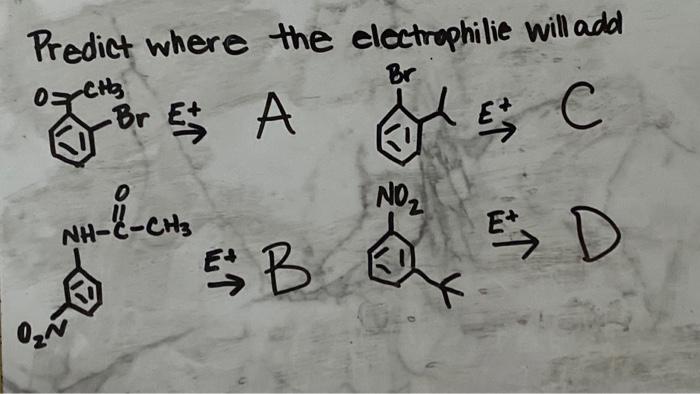 Predict where the electrophilie will add
O CH3
Br E+ A
Br
E+ C
O
NH-C-CH3
O2N
E+ B
NO2
E+ D